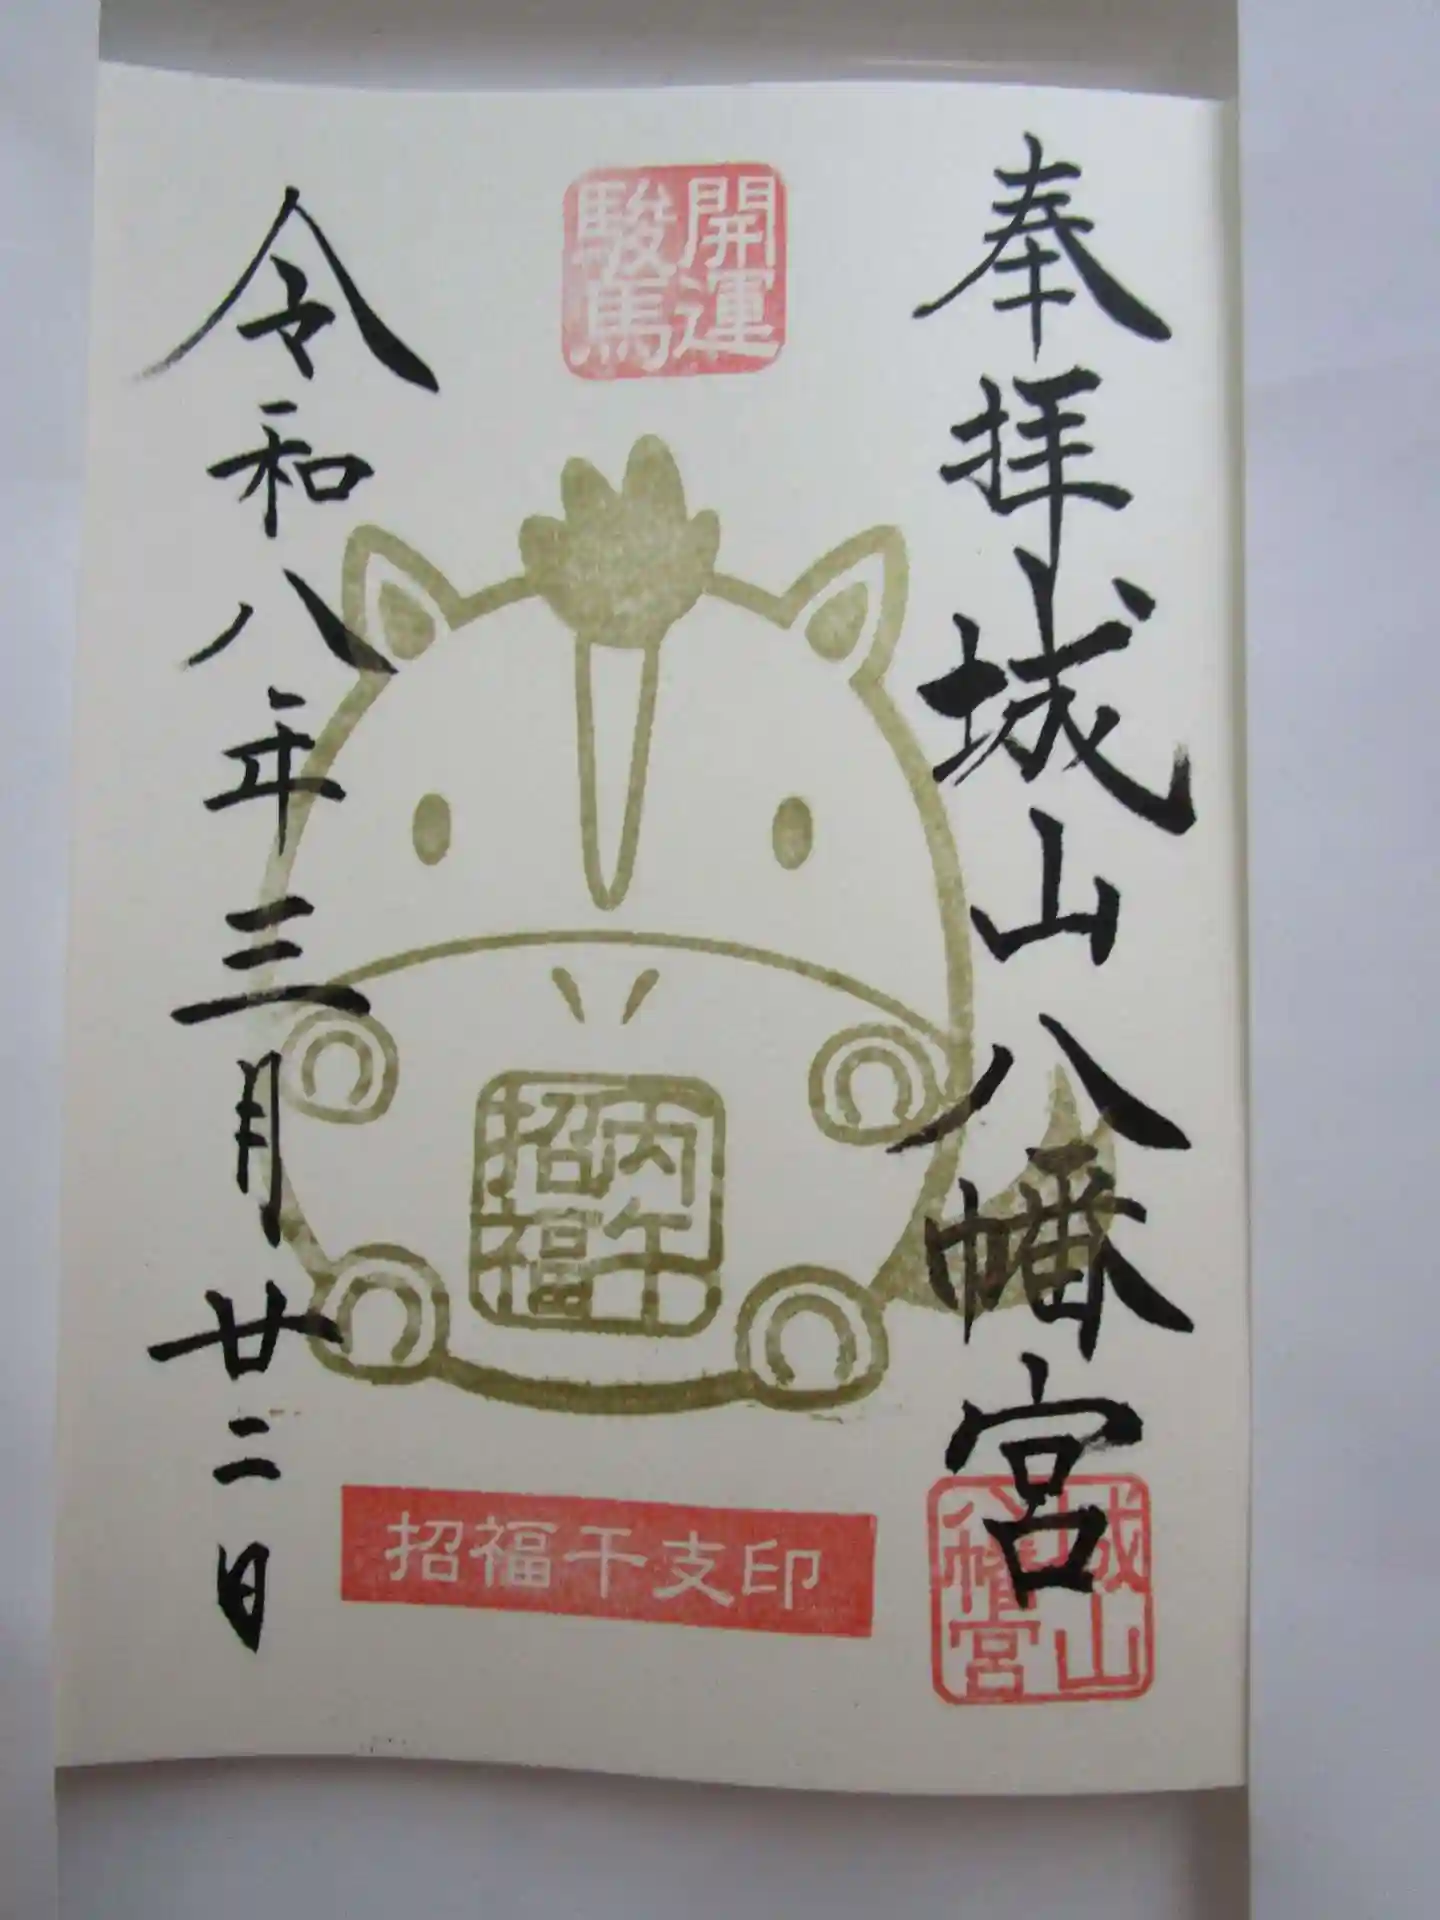 奉拝 城山八幡宮
城山
八幡宮
開運
駿馬
丙午
招福
招福干支印
令和八年三月廿二日